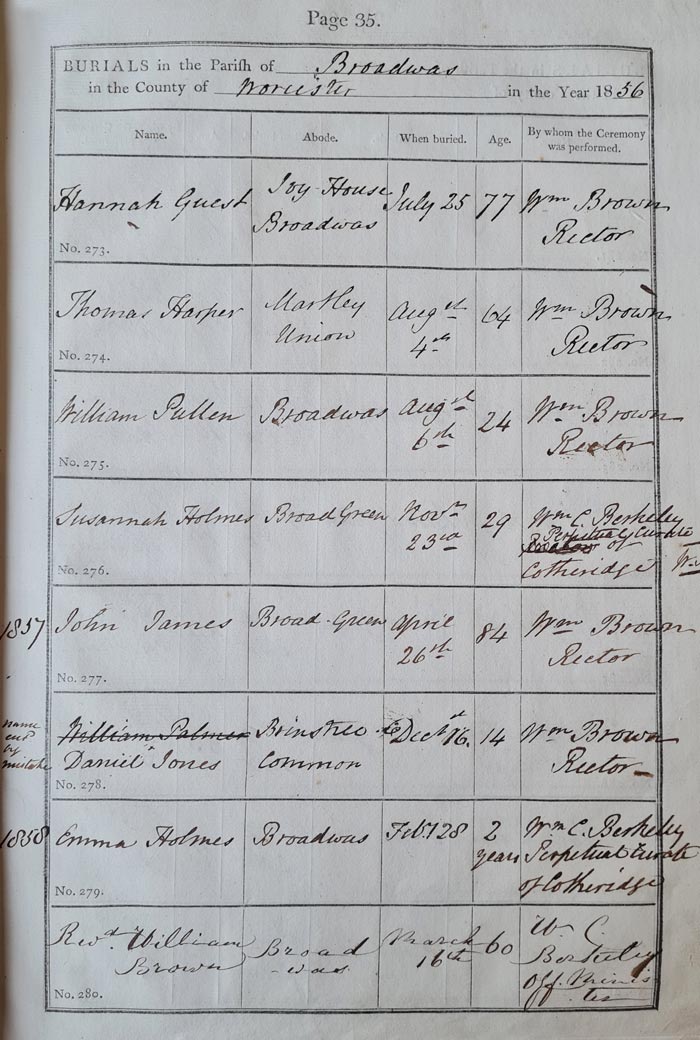 Page 35.
BURIALS in the Parish of Broadwas
in the County of Worcester in the Year 1856
Name. Abode. When buried. Age. By whom the Ceremony was performed.
Hannah Guest Ivy House Broadwas July 25 77 Wm Brown Rector
No. 273.
Thomas Harper Martley Union Augst 4th 64 Wm Brown Rector
No. 274.
William Pullen Broadwas Augst 6th 24 Wm Brown Rector
No. 275.
Susannah Holmes Broad Green Novr 23rd 29 Wm C. Berkeley Perpetual Curate of Cotheridge
No. 276.
1857 John James Broad-Green April 26th 84 Wm Brown Rector
No. 277.
name
by
mistake
William Palmer
Daniel Jones Common 14 Wm Brown Rector
No. 278.
1858 Emma Holmes Broadwas Feb. 28 2 years Wm C. Berkeley Perpetual Curate of Cotheridge
No. 279.
Revd William Brown Broadwas March 16th 60 W C Berkeley Off. Minister
No. 280.